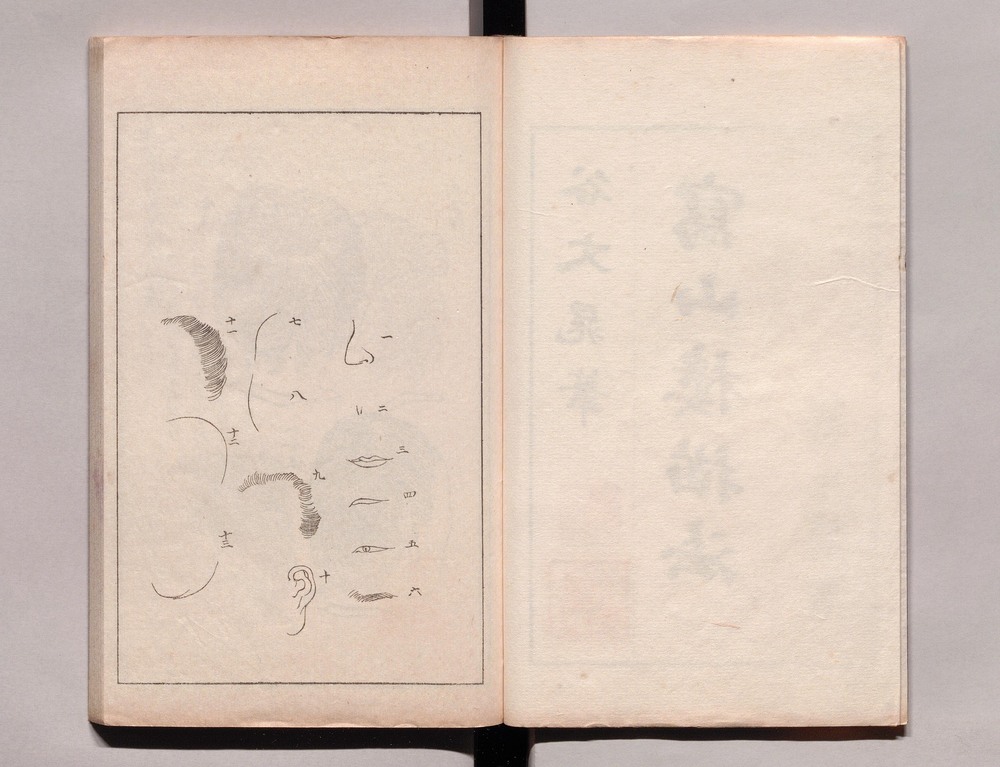 一
二
三
四
五
六
七
八
九
十
十一
十二
十三